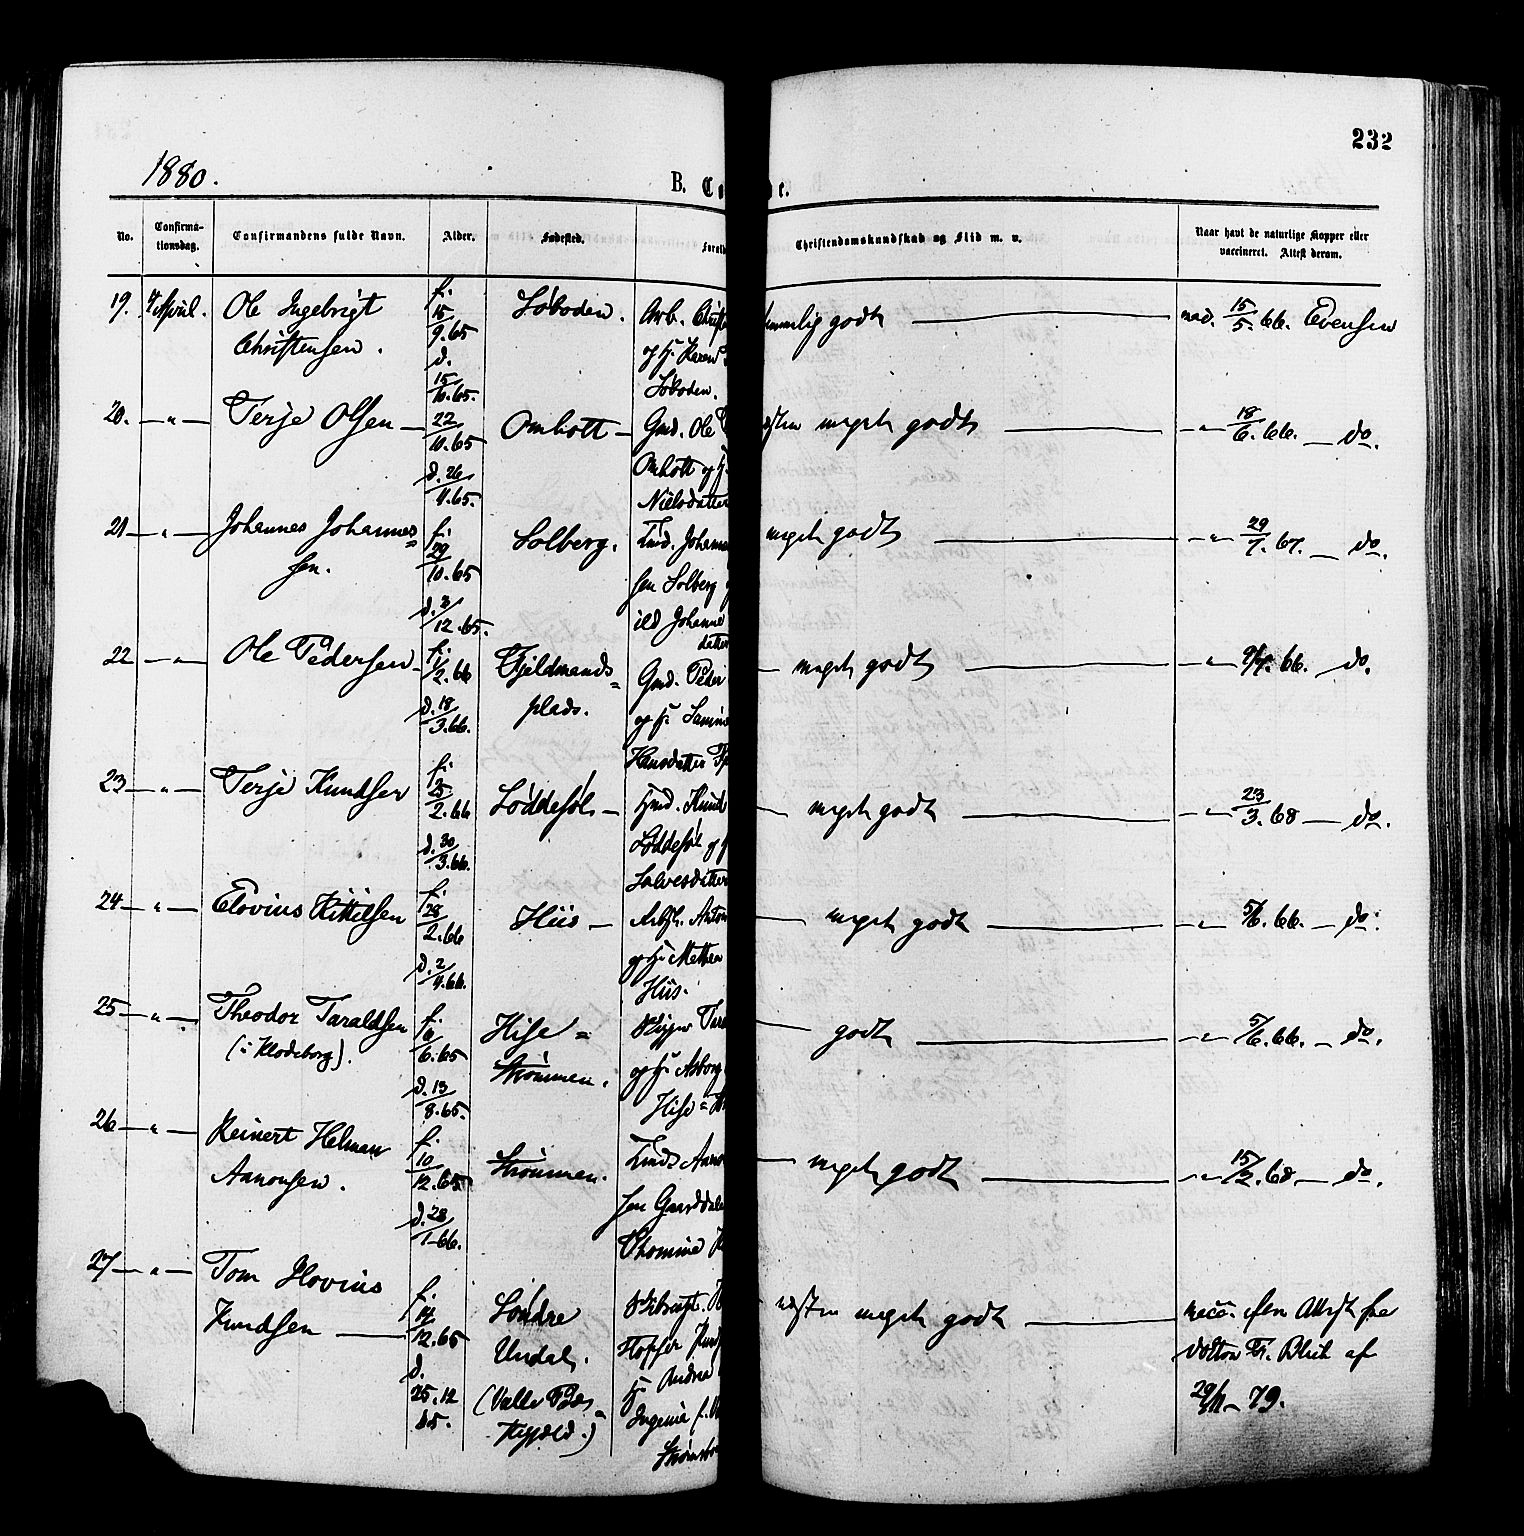 232
1880.
B. Co e.
No. Confirma-tionsdag. Confirmandens fulde Navn. Alder. Fødested. Foræld Christendomskundskab og Flid m. v. Naar havt de naturlige Kopper eller vaccineret. Attest derom.
19. 4 April. Ole Ingebrigt Christensen. f. 15/9.65 d. 15/10.65. Løboden. Arb. Christ og H. Karen Løboden. godt vac. 15/5.66. Evensen
20. — " — Terje Olsen — 22/10.65 d. 26/11.65. Omholt — Gmd. Ole Omholt og H. Nielsdatter næsten meget godt — " — 18/6.66. — do.
21 — " — Johannes Johannes=sen. f. 29/10.65 d. 3/12.65. Solberg. Johannes sen Solberg Johanne datter meget godt — " — 29/7.67. — do.
22 — " — Ole Pedersen — f. 1/2.66 d. 18/3.66. Fjeldmands=plads. Gmd. Peder og H. Hansdatter meget godt — " — 9/7.66. do.
23 — " — Terje Knudsen f. 25/2.66 d. 30/3.66. Løddesøl — Knud Løddesøl og Salvesdatter meget godt — " — 23/3.68 — do.
24 — " — Elovius Kittilsen f. 28/2.66 d. 2/4.66. Hiis — Anton og H. Mathea Hiis. meget godt — " — 5/6.66. — do.
25 — " — Theodor Taraldsen (i Klodeborg). f. 10/6.65 d. 13/8.65. Hise=Strømmen. Tara og H. Asborg Hise= godt — " — 5/6.66. — do.
26 — " — Reinert Helman Aanonsen. f. 10/12.65 d. 28/1-66. Strømmen. Aano sen Gaarddale Thomine meget godt — " — 15/2.68 — do.
27 — " — Tom Hovius Knudsen — f. 14/12.65 d. 25.12 65. Søndre Undal. (Valle Præstegjæld.) H. Andrea Ingenia næsten meget godt Attest fra doktor Fr. Blich af 29/11 - 79.